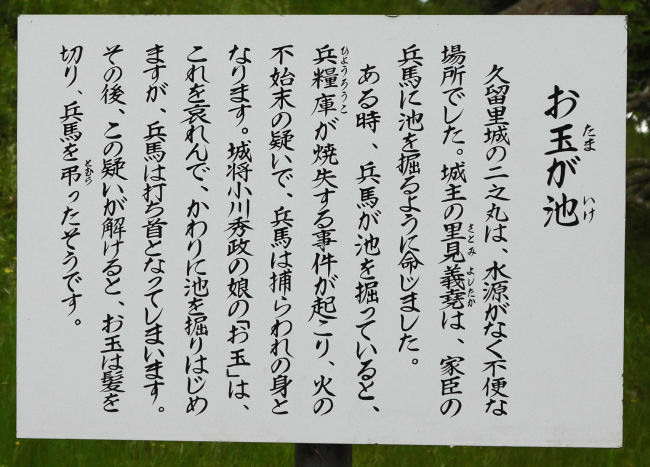 お玉が池
たま いけ
久留里城の二之丸は、水源がなく不便な
場所でした。城主の里見義堯は、家臣の
さとみ よしたか
兵馬に池を掘るように命じました。
ある時、兵馬が池を掘っていると、
兵糧庫が焼失する事件が起こり、火の
ひようろうこ
不始末の疑いで、兵馬は捕らわれの身と
なります。城将小川秀政の娘の「お玉」は、
これを哀れんで、かわりに池を掘りはじめ
ますが、兵馬は打ち首となってしまいます。
その後、この疑いが解けると、お玉は髪を
切り、兵馬を弔ったそうです。
とむら